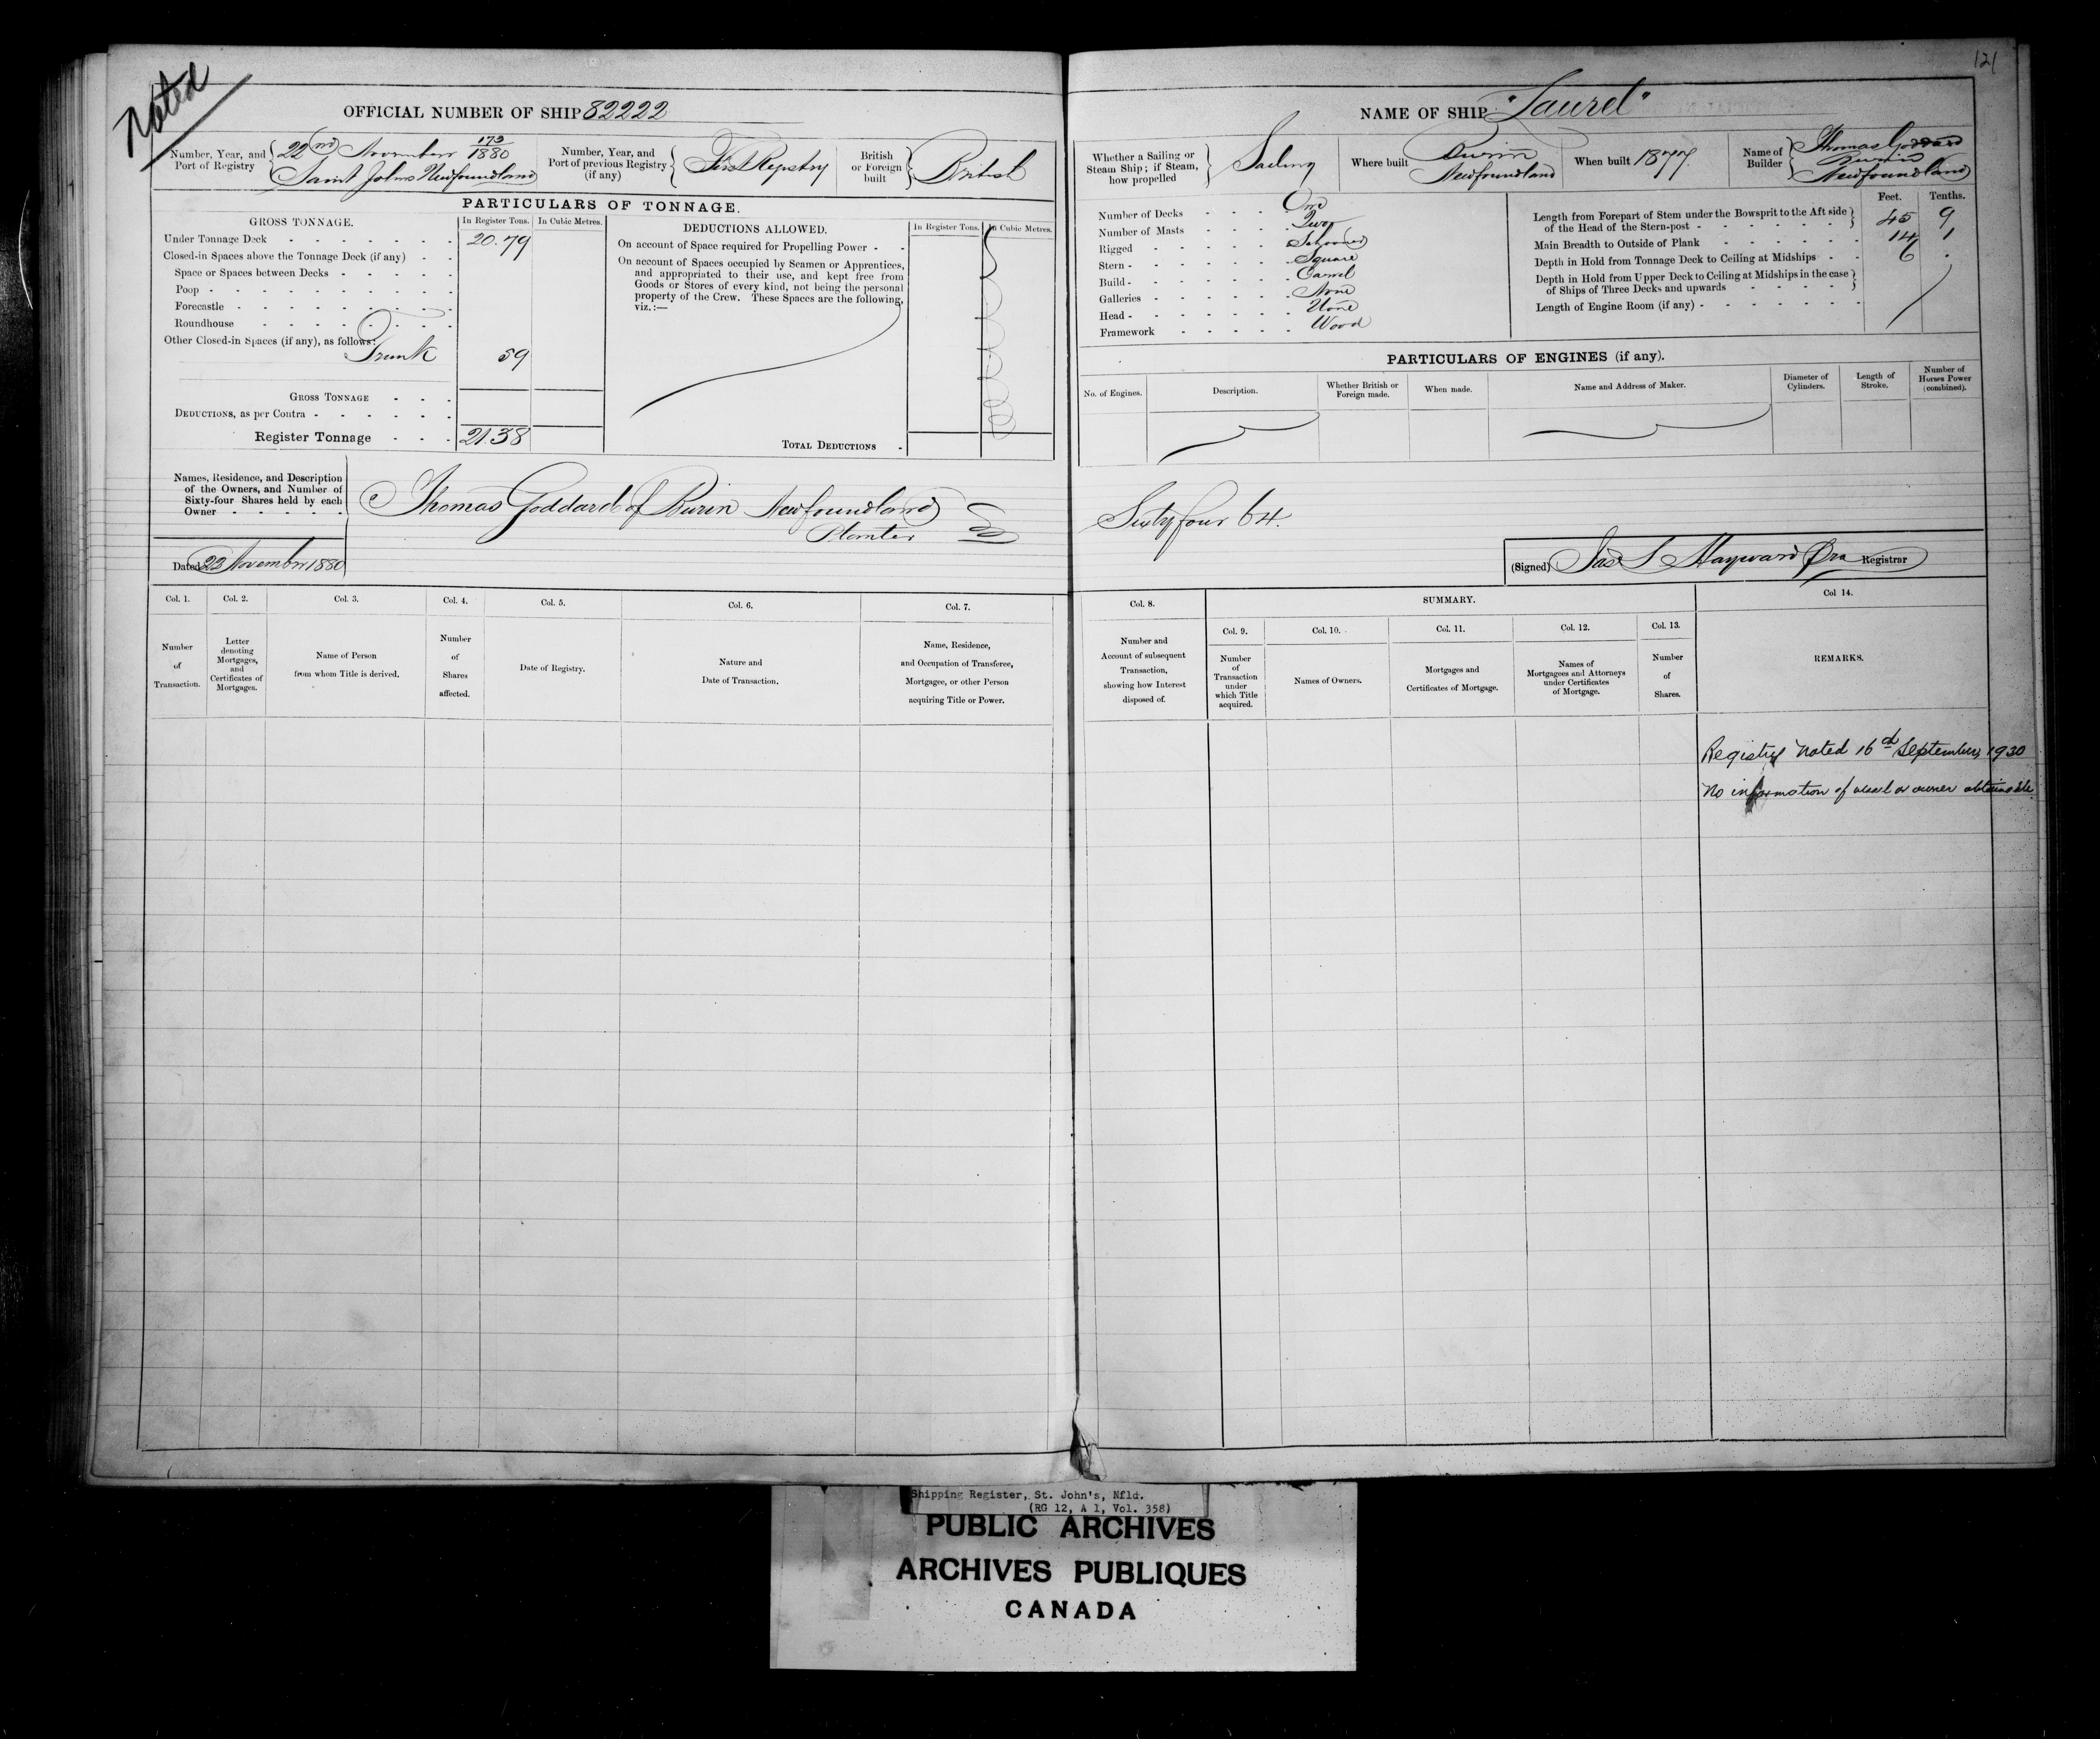 Noted
OFFICIAL NUMBER OF SHIP 82222
Number, Year, and Port of Registry
22nd November 173/1880
Saint Johns Newfoundland
Number, Year, and Port of previous Registry (if any)
First Registry
British or Foreign built
British
PARTICULARS OF TONNAGE.
GROSS TONNAGE.
In Register Tons.
In Cubic Metres.
Under Tonnage Deck 20.79
Closed-in Spaces above the Tonnage Deck (if any)
Space or Spaces between Decks
Poop
Forecastle
Roundhouse
Other Closed-in Spaces (if any), as follows:
Trunk 59
GROSS TONNAGE
DEDUCTIONS, as per Contra
Register Tonnage 21.38
DEDUCTIONS ALLOWED.
In Register Tons.
In Cubic Metres.
On account of Space required for Propelling Power
On account of Spaces occupied by Seamen or Apprentices,
and appropriated to their use, and kept free from
Goods or Stores of every kind, not being the personal
property of the Crew. These Spaces are the following,
viz.:—
TOTAL DEDUCTIONS
Names, Residence, and Description
of the Owners, and Number of
Sixty-four Shares held by each
Owner
Thomas Goddard of Burin Newfoundland
Planter
Dated 22 November 1880
Col. 1.
Number
of
Transaction.
Col. 2.
Letter
denoting
Mortgages,
and
Certificates of
Mortgages.
Col. 3.
Name of Person
from whom Title is derived.
Col. 4.
Number
of
Shares
affected.
Col. 5.
Date of Registry.
Col. 6.
Nature and
Date of Transaction.
Col. 7.
Name, Residence,
and Occupation of Transferee,
Mortgagee, or other Person
acquiring Title or Power.
121
NAME OF SHIP "Laurel"
Whether a Sailing or
Steam Ship; if Steam,
how propelled
Sailing
Where built
Burin
Newfoundland
When built 1877
Name of Builder
Thomas Goddard
Burin
Newfoundland
Number of Decks One
Number of Masts Two
Rigged Schooner
Stern Square
Build Carvel
Galleries None
Head None
Framework Wood
Feet. Tenths.
Length from Forepart of Stem under the Bowsprit to the Aft side
of the Head of the Stern-post 45 9
Main Breadth to Outside of Plank 14 1
Depth in Hold from Tonnage Deck to Ceiling at Midships 6 .
Depth in Hold from Upper Deck to Ceiling at Midships in the case
of Ships of Three Decks and upwards
Length of Engine Room (if any)
PARTICULARS OF ENGINES (if any).
No. of Engines.
Description.
Whether British or
Foreign made.
When made.
Name and Address of Maker.
Diameter of
Cylinders.
Length of
Stroke.
Number of
Horses Power
(combined).
Sixty four 64.
(Signed) Jas S Hayward Registrar
Col. 8.
Number and
Account of subsequent
Transaction,
showing how Interest
disposed of.
SUMMARY.
Col. 9.
Number
of
Transaction
under
which Title
acquired.
Col. 10.
Names of Owners.
Col. 11.
Mortgages and
Certificates of Mortgage.
Col. 12.
Names of
Mortgagees and Attorneys
under Certificates
of Mortgage.
Col. 13.
Number
of
Shares.
Col 14.
REMARKS.
Registry noted 16 September 1930
No information of vessel or owner obtainable
Shipping Register, St. John's, Nfld.
(RG 12, A 1, Vol. 358)
PUBLIC ARCHIVES
ARCHIVES PUBLIQUES
CANADA